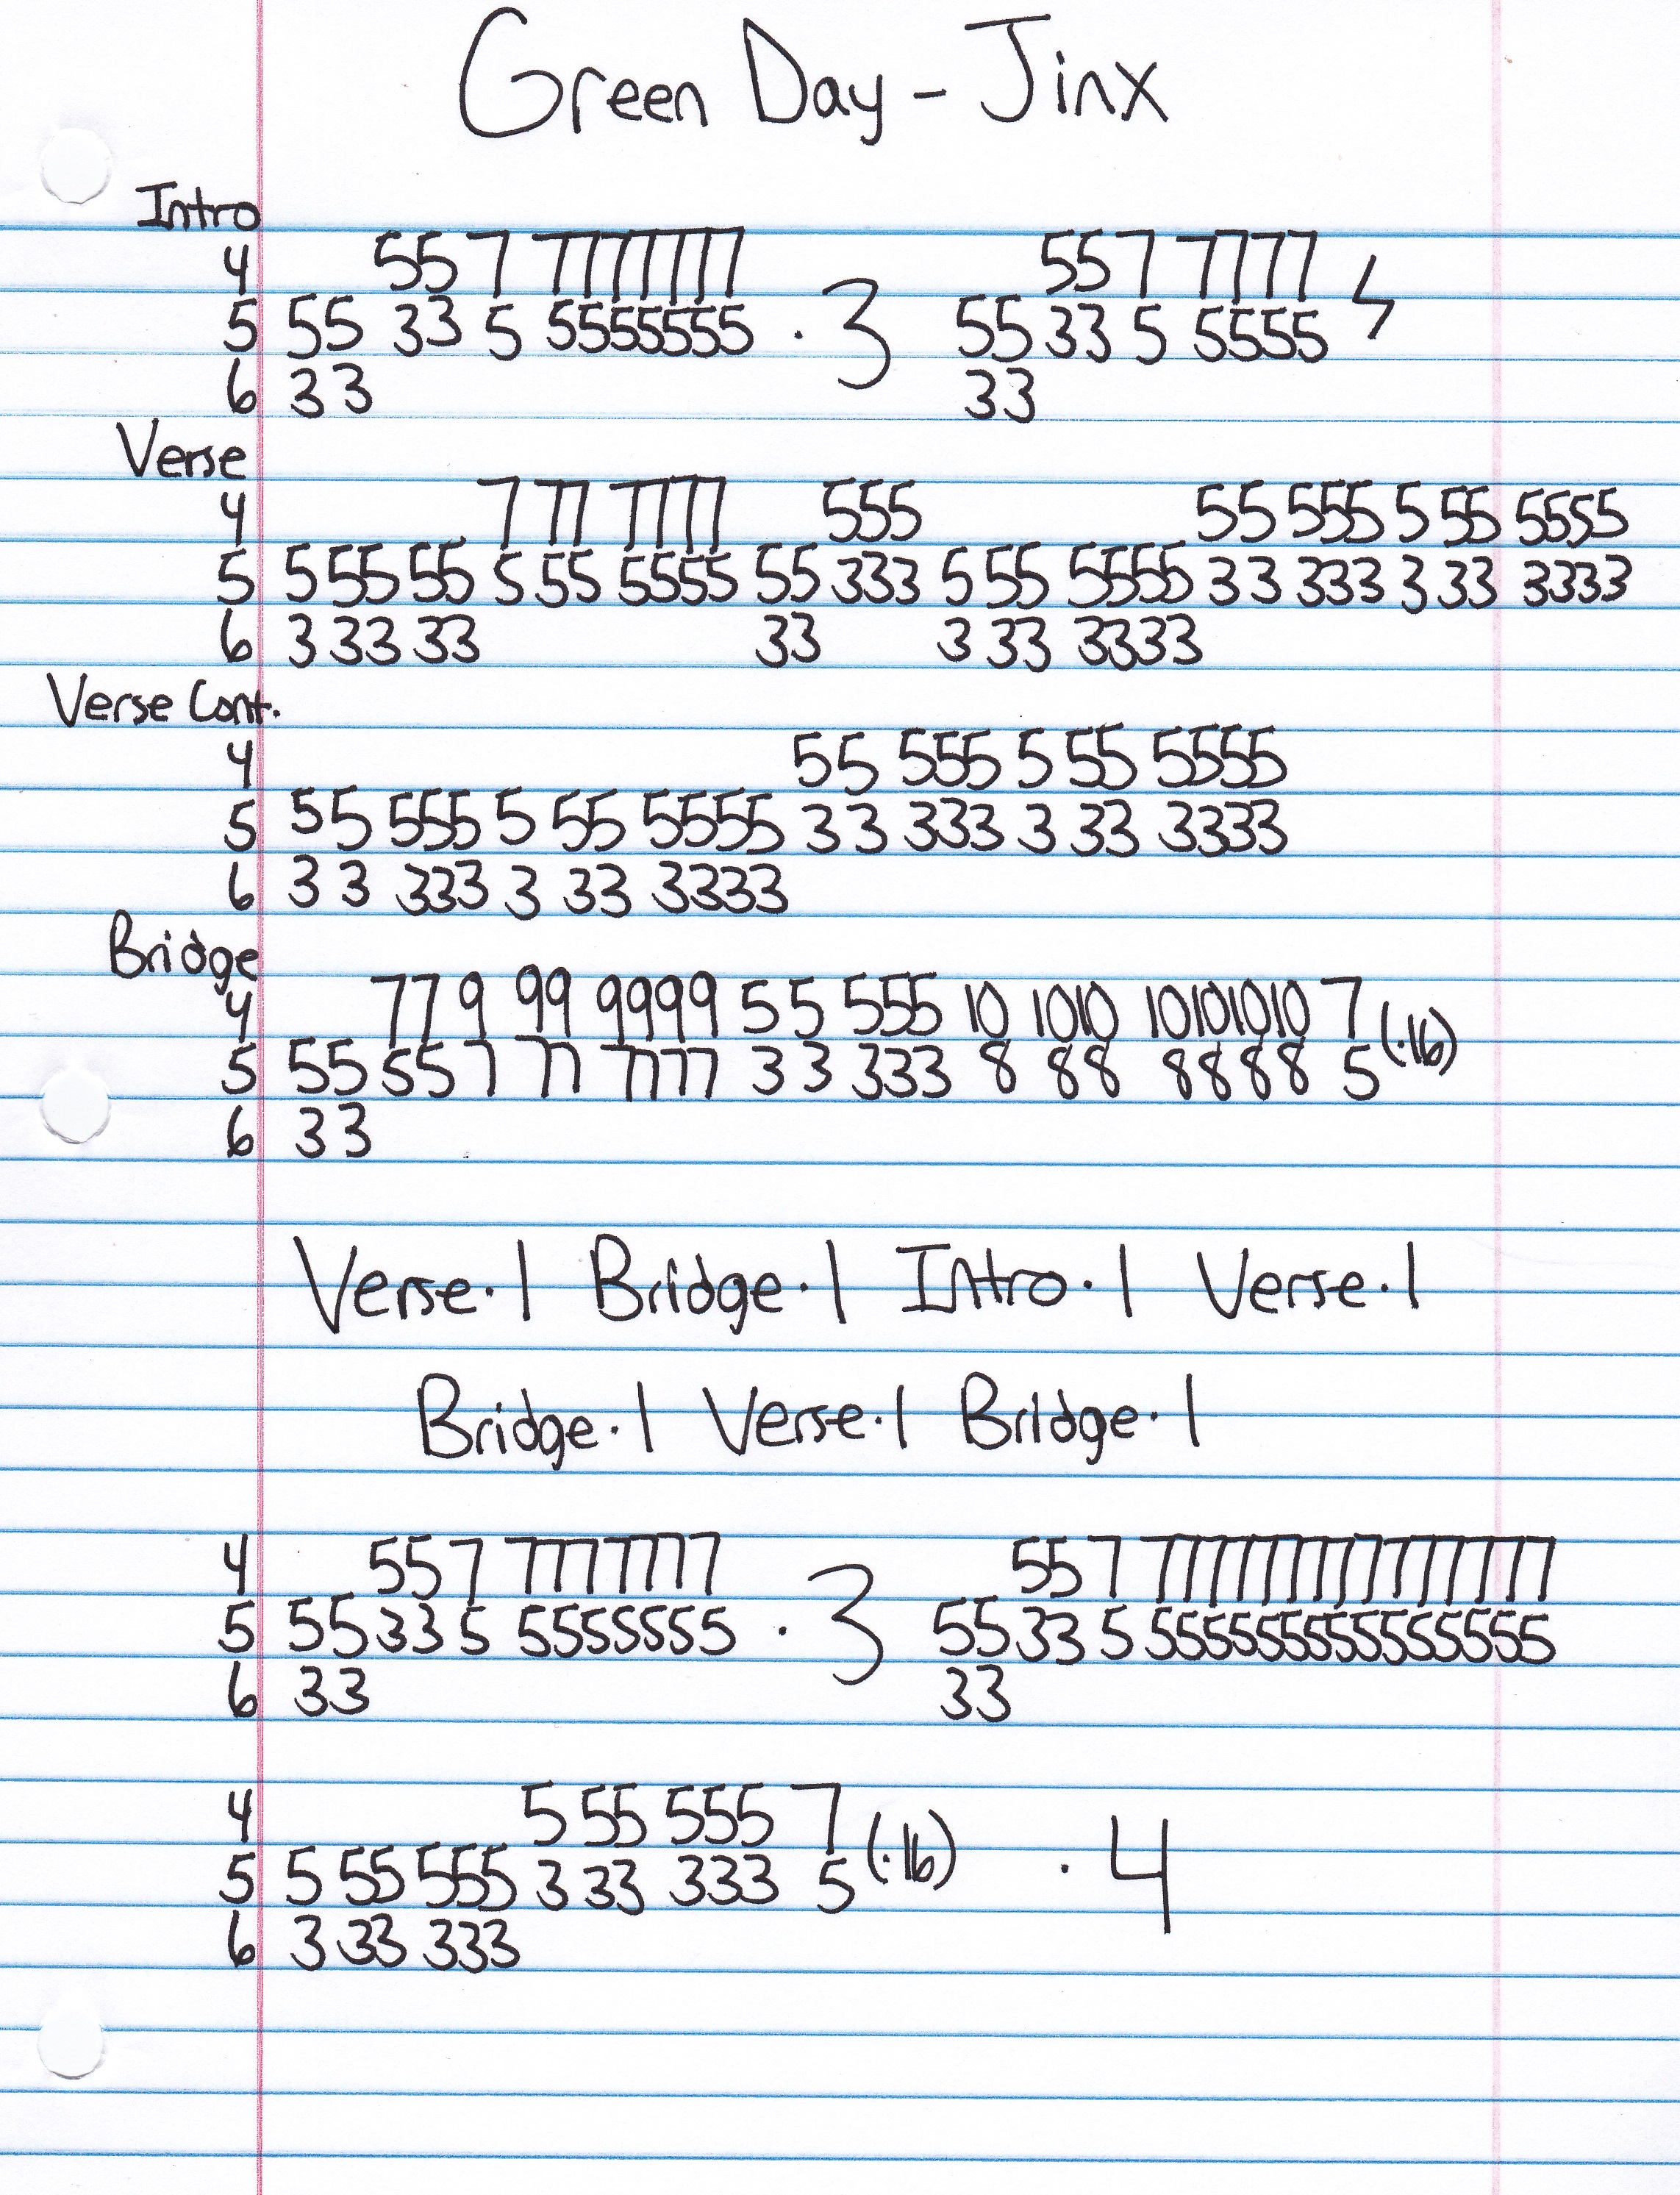 Green Day - Jinx
Intro
4 55 7 7777777 557 7777 ϟ
5 55 33 5 5555555 · 3 55 33 5 5555
6 33 33
Verse
4 7 77 7777 555 55 555 5 55 5555
5 5 55 55 5 55 5555 55 333 5 55 5555 33 333 3 33 3333
6 3 33 33 33 3 33 3333
Verse Cont.
4 55 555 5 55 5555
5 55 555 5 55 5555 33 333 3 33 3333
6 33 333 3 33 3333
Bridge
4 77 9 99 9999 55 555 10 1010 10101010 7 (·16)
5 55 55 7 77 7777 33 333 8 88 8888 5
6 33
Verse·1 Bridge·1 Intro·1 Verse·1
Bridge·1 Verse·1 Bridge·1
4 557 7777777 557 777777777777777
5 55 33 5 5555555 · 3 55 33 5 555555555555555
6 33 33
4 5 55 555 7 (·16) · 4
5 5 55 555 3 33 333 5
6 3 33 333